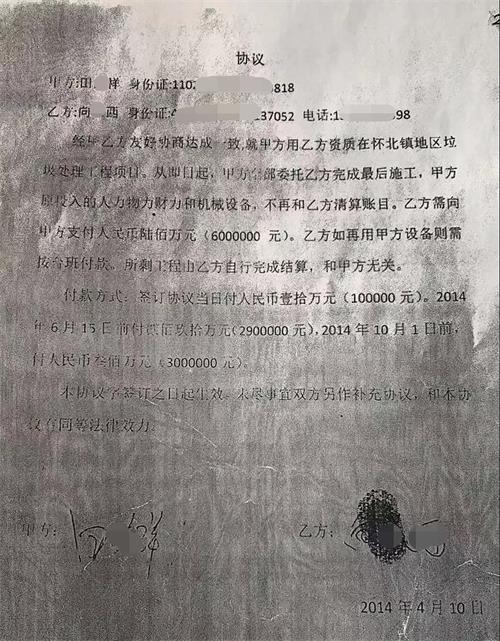 协议
甲方:田 祥 身份证:1102 818
乙方:向 西 身份证:4 237052 电话:1 98
经甲乙方友好协商达成一致,就甲方用乙方资质在怀北镇地区垃
圾处理工程项目。从即日起，甲方全部委托乙方完成最后施工，甲方
原投入的人力物力财力和机械设备，不再和乙方清算账目。乙方需向
甲方支付人民币陆佰万元（6000000 元）。乙方如再用甲方设备则需
按台班付款。所剩工程由乙方自行完成结算，和甲方无关。
付款方式：签订协议当日付人民币壹拾万元（100000 元）。2014
年 6 月 15 日前付贰佰玖拾万元(2900000 元), 2014 年 10 月 1 日前，
付人民币叁佰万元（3000000 元）。
本协议字签订之日起生效。未尽事宜双方另作补充协议，和本协
议合同等法律效力。
甲方： 田 祥 乙方：
2014 年 4 月 10 日